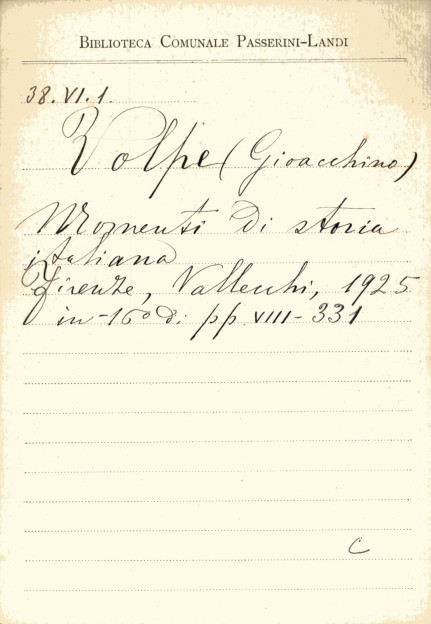 BIBLIOTECA COMUNALE PASSERINI-LANDI
38.VI.1.
Volpe (Gioacchino)
Momenti di storia
italiana
Firenze, Vallecchi, 1925
in-16º di pp VIII-331
C